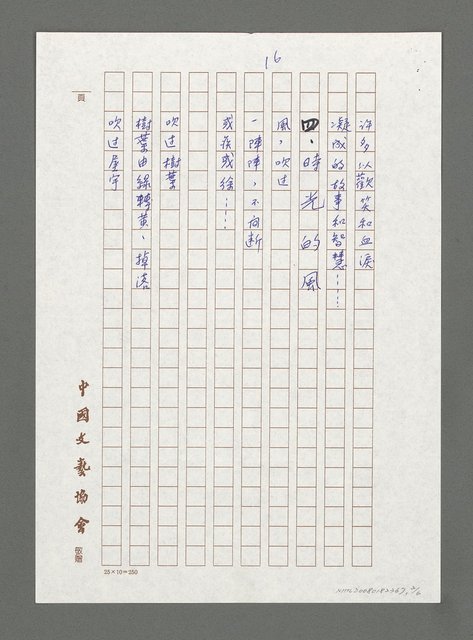 16
許多以歡笑和血淚
凝成的故事和智慧……
四、時光的風
風，吹过
一陣陣，不间斷
或疾或徐……
吹过樹葉
樹葉由綠轉黃、掉落
吹过屋宇
頁
中國文藝協會
敬贈
25×10=250